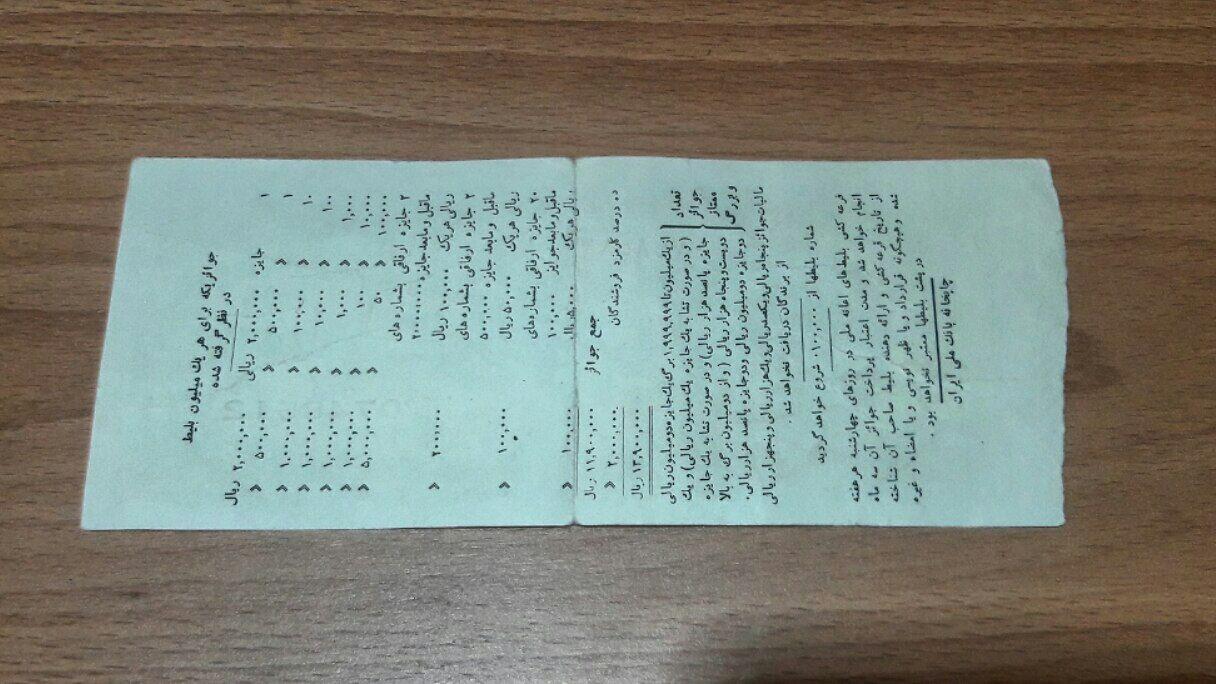 جوائزیکه برای هر یک میلیون بلیط
در نظر گرفته شده
۱ جایزه ۲,۰۰۰,۰۰۰ ریالی ۲,۰۰۰,۰۰۰ ریال
۱ » ۵۰۰,۰۰۰ » ۵۰۰,۰۰۰ »
۱۰ » ۱۰۰,۰۰۰ » ۱,۰۰۰,۰۰۰ »
۱۰۰ » ۱۰,۰۰۰ » ۱,۰۰۰,۰۰۰ »
۱,۰۰۰ » ۱,۰۰۰ » ۱,۰۰۰,۰۰۰ »
۱۰,۰۰۰ » ۱۰۰ » ۱,۰۰۰,۰۰۰ »
۱۰۰,۰۰۰ » ۵۰ » ۵,۰۰۰,۰۰۰ »
۲ جایزه ارفاقی بشماره های
ماقبل و مابعد جایزه ۲۰۰۰۰۰۰
ریالی هریک ۱۰۰,۰۰۰ ریال ۲۰۰,۰۰۰ »
۲ جایزه ارفاقی بشماره های
ماقبل و مابعد جایزه ۵۰۰,۰۰۰
ریالی هریک ۵۰,۰۰۰ ریال ۱۰۰,۰۰۰ »
۲۰ جایزه ارفاقی بشماره های
ماقبل و مابعد جوایز ۱۰۰,۰۰۰
ریالی هریک ۵,۰۰۰ ریال ۱۰۰,۰۰۰ »
جمع جوائز ۱۱,۹۰۰,۰۰۰ ریال
ده درصد کارمزد فروشندگان ۲,۰۰۰,۰۰۰ »
۱۳,۹۰۰,۰۰۰ ریال
تعداد جوائز ممتاز و بزرگ
از یک میلیون تا ۱,۹۹۹,۹۹۹ برگ یک جایزه دو میلیون ریالی
(و در صورت تشابه یک جایزه یک میلیون ریالی) و یک
جایزه پانصد هزار ریالی (و در صورت تشابه یک جایزه
دویست و پنجاه هزار ریالی) و از دو میلیون برگ به بالا
دو جایزه دو میلیون ریالی و دو جایزه پانصد هزار ریالی.
مالیات جوائز پنجاه ریالی و یکصد ریالی و یک هزار ریالی و پنجهزار ریالی
از برندگان دریافت نخواهد شد.
شماره بلیطها از ۱۰۰,۰۰۰ شروع خواهد گردید
قرعه کشی بلیط های اعانه ملی در روزهای چهارشنبه هر هفته
انجام خواهد شد و مدت اعتبار پرداخت جوائز آن سه ماه
از تاریخ قرعه کشی و ارائه دهنده بلیط صاحب آن شناخته
شده و هیچگونه قرارداد و یا ظهر نویسی و یا امضاء و غیره
در پشت بلیطها معتبر نخواهد بود .
چاپخانه بانک ملی ایران